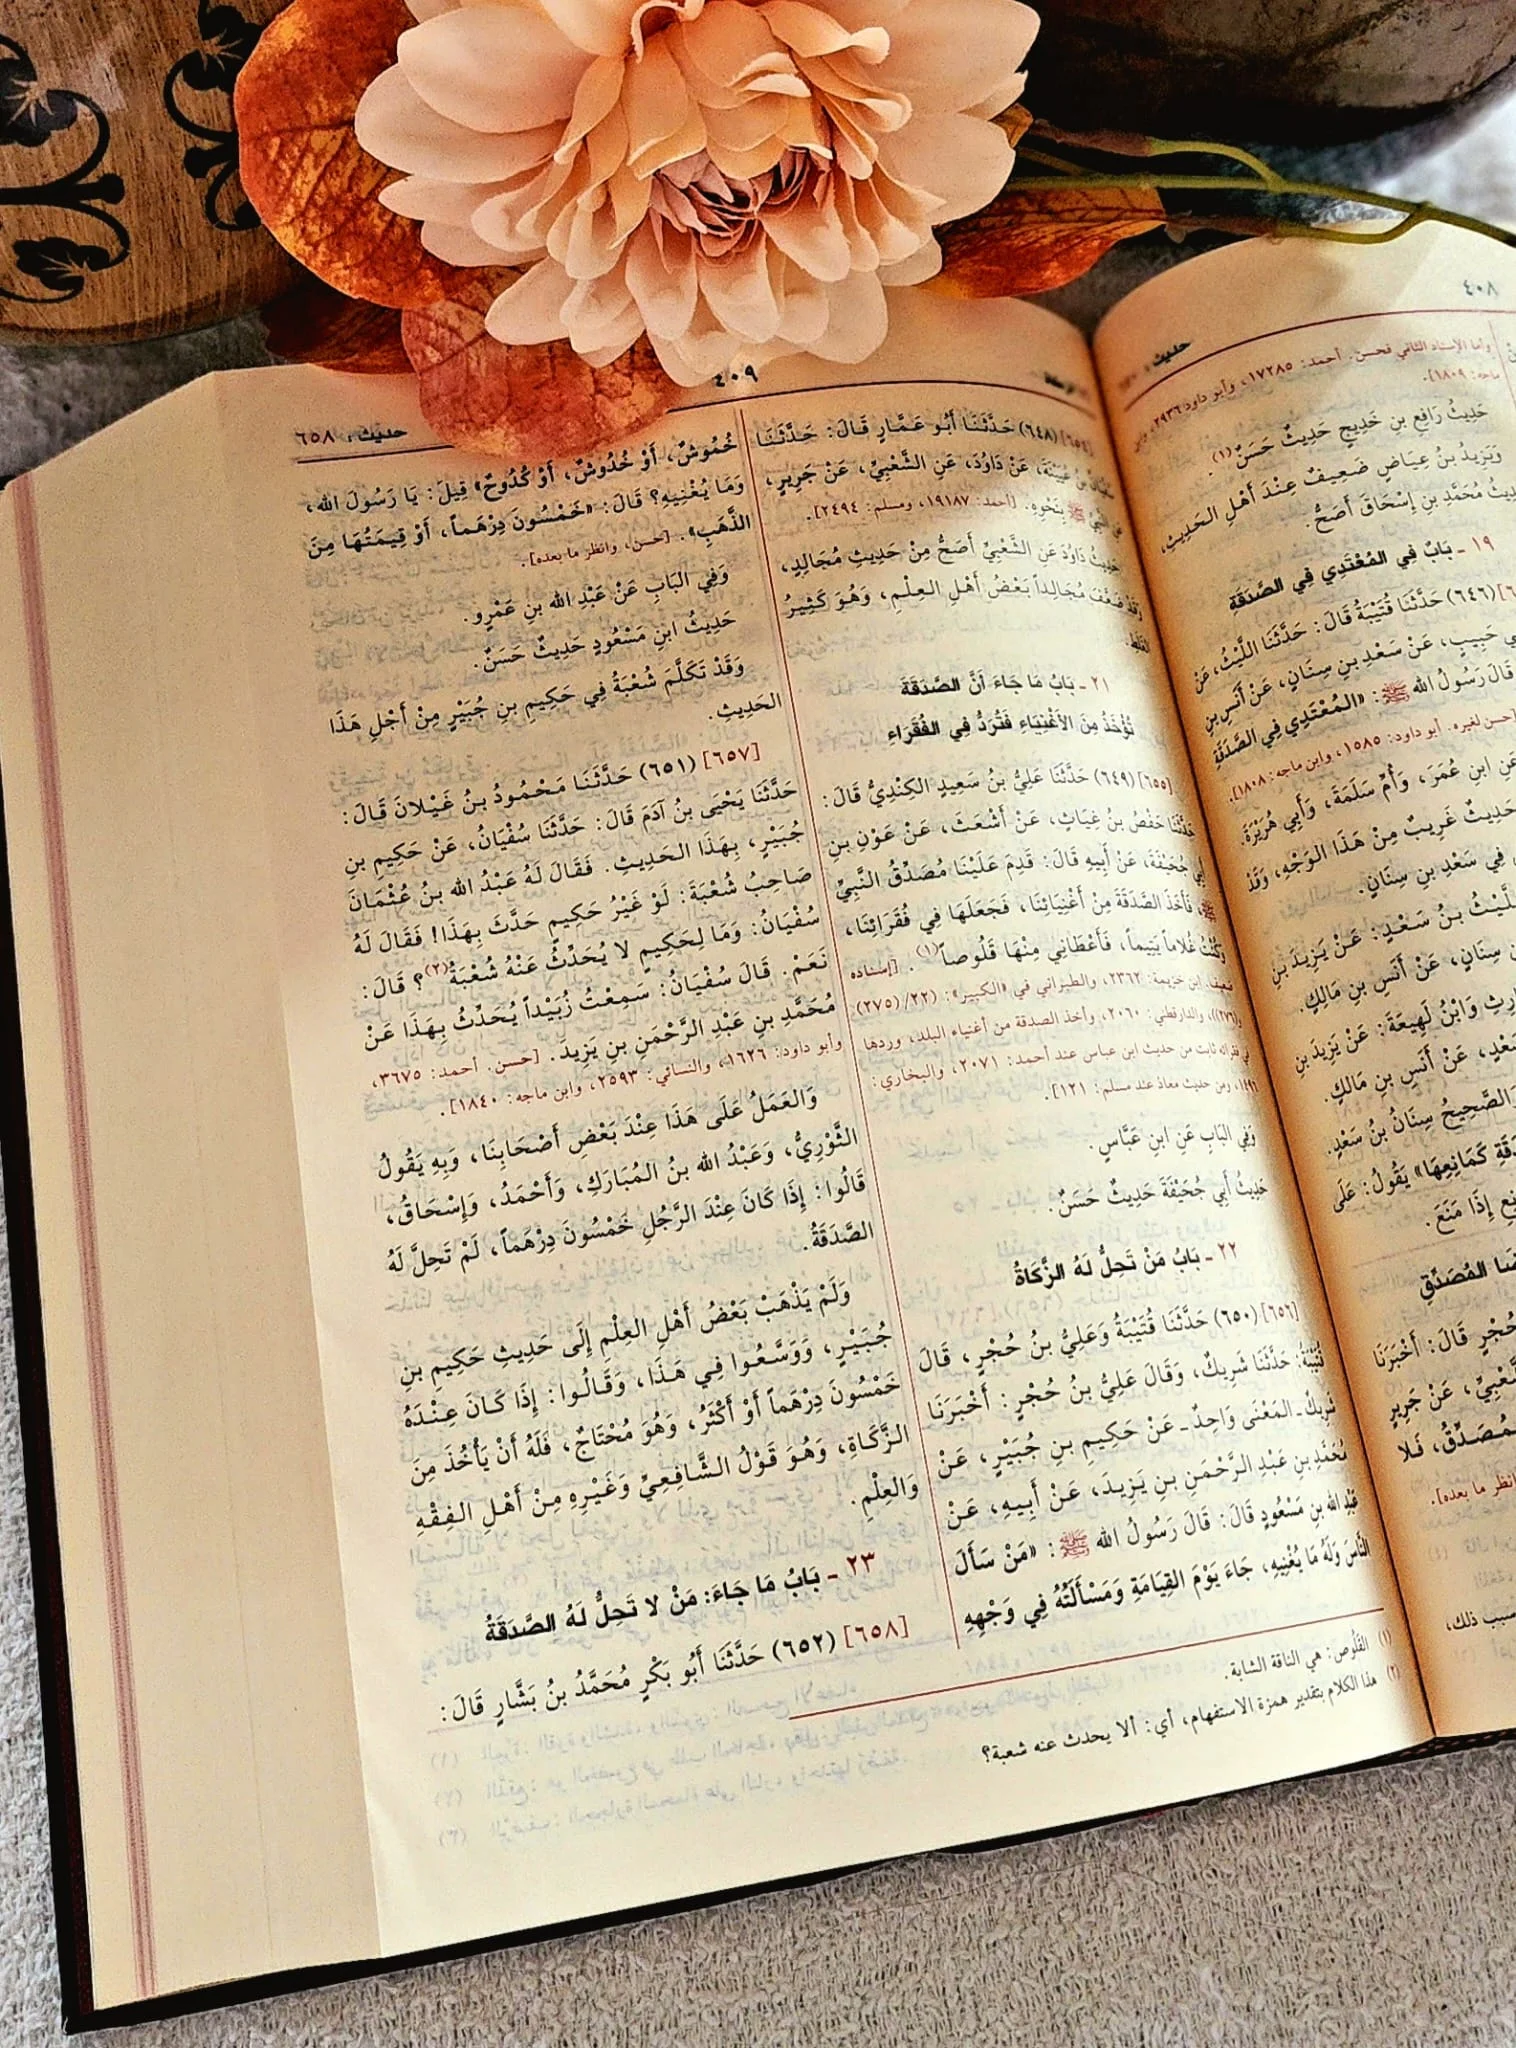 ٤٠٨
حديث:
وأما الإسناد الثاني فحسن. أحمد: ١٧٢٨٥، وأبو داود ٢٩٣٦،
ماجه: ١٨٠٩].
حَدِيثُ رَافِعِ بنِ خَدِيجٍ حَدِيثٌ حَسَنٌ(١).
وَيَزِيدُ بنُ عِيَاضٍ ضَعِيفٌ عِنْدَ أَهْلِ الحَدِيثِ،
مُحَمَّدِ بنِ إِسْحَاقَ أَصَحُّ.
١٩ ـ بَابٌ فِي المُعْتَدِي فِي الصَّدَقَةِ
(٦٤٦) حَدَّثَنَا قُتَيْبَةُ قَالَ: حَدَّثَنَا اللَّيْثُ، عَنْ
حَبِيبٍ، عَنْ سَعْدِ بنِ سِنَانٍ، عَنْ أَنَسِ بنِ
قَالَ رَسُولُ الله ﷺ: «المُعْتَدِي فِي الصَّدَقَةِ
[حسن لغيره. أبو داود: ١٥٨٥، وابن ماجه: ١٨٠٨].
عَنِ ابنِ عُمَرَ، وَأُمِّ سَلَمَةَ، وَأَبِي هُرَيْرَةَ.
حَدِيثٌ غَرِيبٌ مِنْ هَذَا الوَجْهِ، وَقَدْ
فِي سَعْدِ بنِ سِنَانٍ.
اللَّيْثُ بنُ سَعْدٍ: عَنْ يَزِيدَ بنِ
بنِ سِنَانٍ، عَنْ أَنَسِ بنِ مَالِكٍ.
وَابْنُ لَهِيعَةَ: عَنْ يَزِيدَ بنِ
سَعْدٍ، عَنْ أَنَسِ بنِ مَالِكٍ.
وَالصَّحِيحُ سِنَانُ بنُ سَعْدٍ.
كَمَانِعِهَا» يَقُولُ: عَلَى
إِذَا مَنَعَ.
المُصَدِّقِ
حُجْرٍ قَالَ: أَخْبَرَنَا
عَنْ جَرِيرٍ
المُصَدِّقُ، فَلا
انظر ما بعده].
سبب ذلك،
٤٠٩
[٦٥٤] (٦٤٨) حَدَّثَنَا أَبُو عَمَّارٍ قَالَ: حَدَّثَنَا
بنُ عُيَيْنَةَ، عَنْ دَاوُدَ، عَنِ الشَّعْبِيِّ، عَنْ جَرِيرٍ،
بِنَحْوِهِ. [أحمد: ١٩١٨٧، ومسلم: ٢٤٩٤].
حَدِيثُ دَاوُدَ عَنِ الشَّعْبِيِّ أَصَحُّ مِنْ حَدِيثِ مُجَالِدٍ،
وَقَدْ ضَعَّفَ مُجَالِداً بَعْضُ أَهْلِ العِلْمِ، وَهُوَ كَثِيرُ
الغَلَطِ.
٢١ ـ بَابُ مَا جَاءَ أَنَّ الصَّدَقَةَ
تُؤْخَذُ مِنَ الأَغْنِيَاءِ فَتُرَدُّ فِي الفُقَرَاءِ
[٦٥٥] (٦٤٩) حَدَّثَنَا عَلِيُّ بنُ سَعِيدٍ الكِنْدِيُّ قَالَ:
حَدَّثَنَا حَفْصُ بنُ غِيَاثٍ، عَنْ أَشْعَثَ، عَنْ عَوْنِ بنِ
أَبِي جُحَيْفَةَ، عَنْ أَبِيهِ قَالَ: قَدِمَ عَلَيْنَا مُصَدِّقُ النَّبِيِّ
ﷺ، فَأَخَذَ الصَّدَقَةَ مِنْ أَغْنِيَائِنَا، فَجَعَلَهَا فِي فُقَرَائِنَا،
وَكُنْتُ غُلَاماً يَتِيماً، فَأَعْطَانِي مِنْهَا قَلُوصاً(١). [إسناده
ضعيف. ابن خزيمة: ٢٣٦٢، والطبراني في «الكبير»: (٢٢/ (٢٧٥)
و(٢٧٦))، والدارقطني: ٢٠٦٠، وأخذ الصدقة من أغنياء البلد، وردها
في فقرائه ثابت من حديث ابن عباس عند أحمد: ٢٠٧١، والبخاري:
١٤٩٦، ومن حديث معاذ عند مسلم: ١٢١].
وَفِي البَابِ عَنِ ابنِ عَبَّاسٍ.
حَدِيثُ أَبِي جُحَيْفَةَ حَدِيثٌ حَسَنٌ.
٢٢ ـ بَابُ مَنْ تَحِلُّ لَهُ الزَّكَاةُ
[٦٥٦] (٦٥٠) حَدَّثَنَا قُتَيْبَةُ وَعَلِيُّ بنُ حُجْرٍ، قَالَ
قُتَيْبَةُ: حَدَّثَنَا شَرِيكٌ، وَقَالَ عَلِيُّ بنُ حُجْرٍ: أَخْبَرَنَا
شَرِيكٌ ـ المَعْنَى وَاحِدٌ ـ عَنْ حَكِيمِ بنِ جُبَيْرٍ، عَنْ
مُحَمَّدِ بنِ عَبْدِ الرَّحْمَنِ بنِ يَزِيدَ، عَنْ أَبِيهِ، عَنْ
عَبْدِ الله بنِ مَسْعُودٍ قَالَ: قَالَ رَسُولُ الله ﷺ: «مَنْ سَأَلَ
النَّاسَ وَلَهُ مَا يُغْنِيهِ، جَاءَ يَوْمَ القِيَامَةِ وَمَسْأَلَتُهُ فِي وَجْهِهِ
حديث: ٦٥٨
خُمُوشٌ، أَوْ خُدُوشٌ، أَوْ كُدُوحٌ» قِيلَ: يَا رَسُولَ الله،
وَمَا يُغْنِيهِ؟ قَالَ: «خَمْسُونَ دِرْهَماً، أَوْ قِيمَتُهَا مِنَ
الذَّهَبِ». [حسن، وانظر ما بعده].
وَفِي البَابِ عَنْ عَبْدِ الله بنِ عَمْرٍو.
حَدِيثُ ابنِ مَسْعُودٍ حَدِيثٌ حَسَنٌ.
وَقَدْ تَكَلَّمَ شُعْبَةُ فِي حَكِيمِ بنِ جُبَيْرٍ مِنْ أَجْلِ هَذَا
الحَدِيثِ.
[٦٥٧] (٦٥١) حَدَّثَنَا مَحْمُودُ بنُ غَيْلانَ قَالَ:
حَدَّثَنَا يَحْيَى بنُ آدَمَ قَالَ: حَدَّثَنَا سُفْيَانُ، عَنْ حَكِيمِ بنِ
جُبَيْرٍ، بِهَذَا الحَدِيثِ. فَقَالَ لَهُ عَبْدُ الله بنُ عُثْمَانَ
صَاحِبُ شُعْبَةَ: لَوْ غَيْرُ حَكِيمٍ حَدَّثَ بِهَذَا! فَقَالَ لَهُ
سُفْيَانُ: وَمَا لِحَكِيمٍ لا يُحَدِّثُ عَنْهُ شُعْبَةُ(٢)؟ قَالَ:
نَعَمْ. قَالَ سُفْيَانُ: سَمِعْتُ زُبَيْداً يُحَدِّثُ بِهَذَا عَنْ
مُحَمَّدِ بنِ عَبْدِ الرَّحْمَنِ بنِ يَزِيدَ. [حسن. أحمد: ٣٦٧٥،
وأبو داود: ١٦٢٦، والنسائي: ٢٥٩٣، وابن ماجه: ١٨٤٠].
وَالعَمَلُ عَلَى هَذَا عِنْدَ بَعْضِ أَصْحَابِنَا، وَبِهِ يَقُولُ
الثَّوْرِيُّ، وَعَبْدُ الله بنُ المُبَارَكِ، وَأَحْمَدُ، وَإِسْحَاقُ،
قَالُوا: إِذَا كَانَ عِنْدَ الرَّجُلِ خَمْسُونَ دِرْهَماً، لَمْ تَحِلَّ لَهُ
الصَّدَقَةُ.
وَلَمْ يَذْهَبْ بَعْضُ أَهْلِ العِلْمِ إِلَى حَدِيثِ حَكِيمِ بنِ
جُبَيْرٍ، وَوَسَّعُوا فِي هَذَا، وَقَالُوا: إِذَا كَانَ عِنْدَهُ
خَمْسُونَ دِرْهَماً أَوْ أَكْثَرُ، وَهُوَ مُحْتَاجٌ، فَلَهُ أَنْ يَأْخُذَ مِنَ
الزَّكَاةِ، وَهُوَ قَوْلُ الشَّافِعِيِّ وَغَيْرِهِ مِنْ أَهْلِ الفِقْهِ
وَالعِلْمِ.
٢٣ ـ بَابُ مَا جَاءَ: مَنْ لا تَحِلُّ لَهُ الصَّدَقَةُ
[٦٥٨] (٦٥٢) حَدَّثَنَا أَبُو بَكْرٍ مُحَمَّدُ بنُ بَشَّارٍ قَالَ:
(١) القَلُوص: هي الناقة الشابة.
(٢) هذا الكلام بتقدير همزة الاستفهام، أي: ألا يحدث عنه شعبة؟